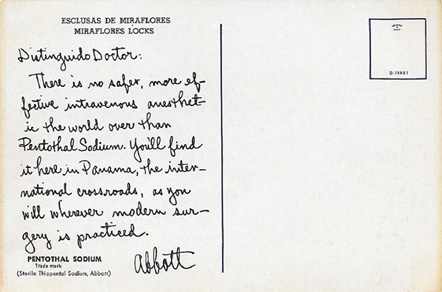 ESCLUSAS DE MIRAFLORES
MIRAFLORES LOCKS
Distinguido Doctor:
There is no safer, more ef-
fective intravenous anesthet-
ic the world over than
Pentothal Sodium. You'll find
it here in Panama, the inter-
national crossroads, as you
will wherever modern sur-
gery is practiced.
Abbott
PENTOTHAL SODIUM
Trade mark
(Sterile Thiopental Sodium, Abbott)
D-18651